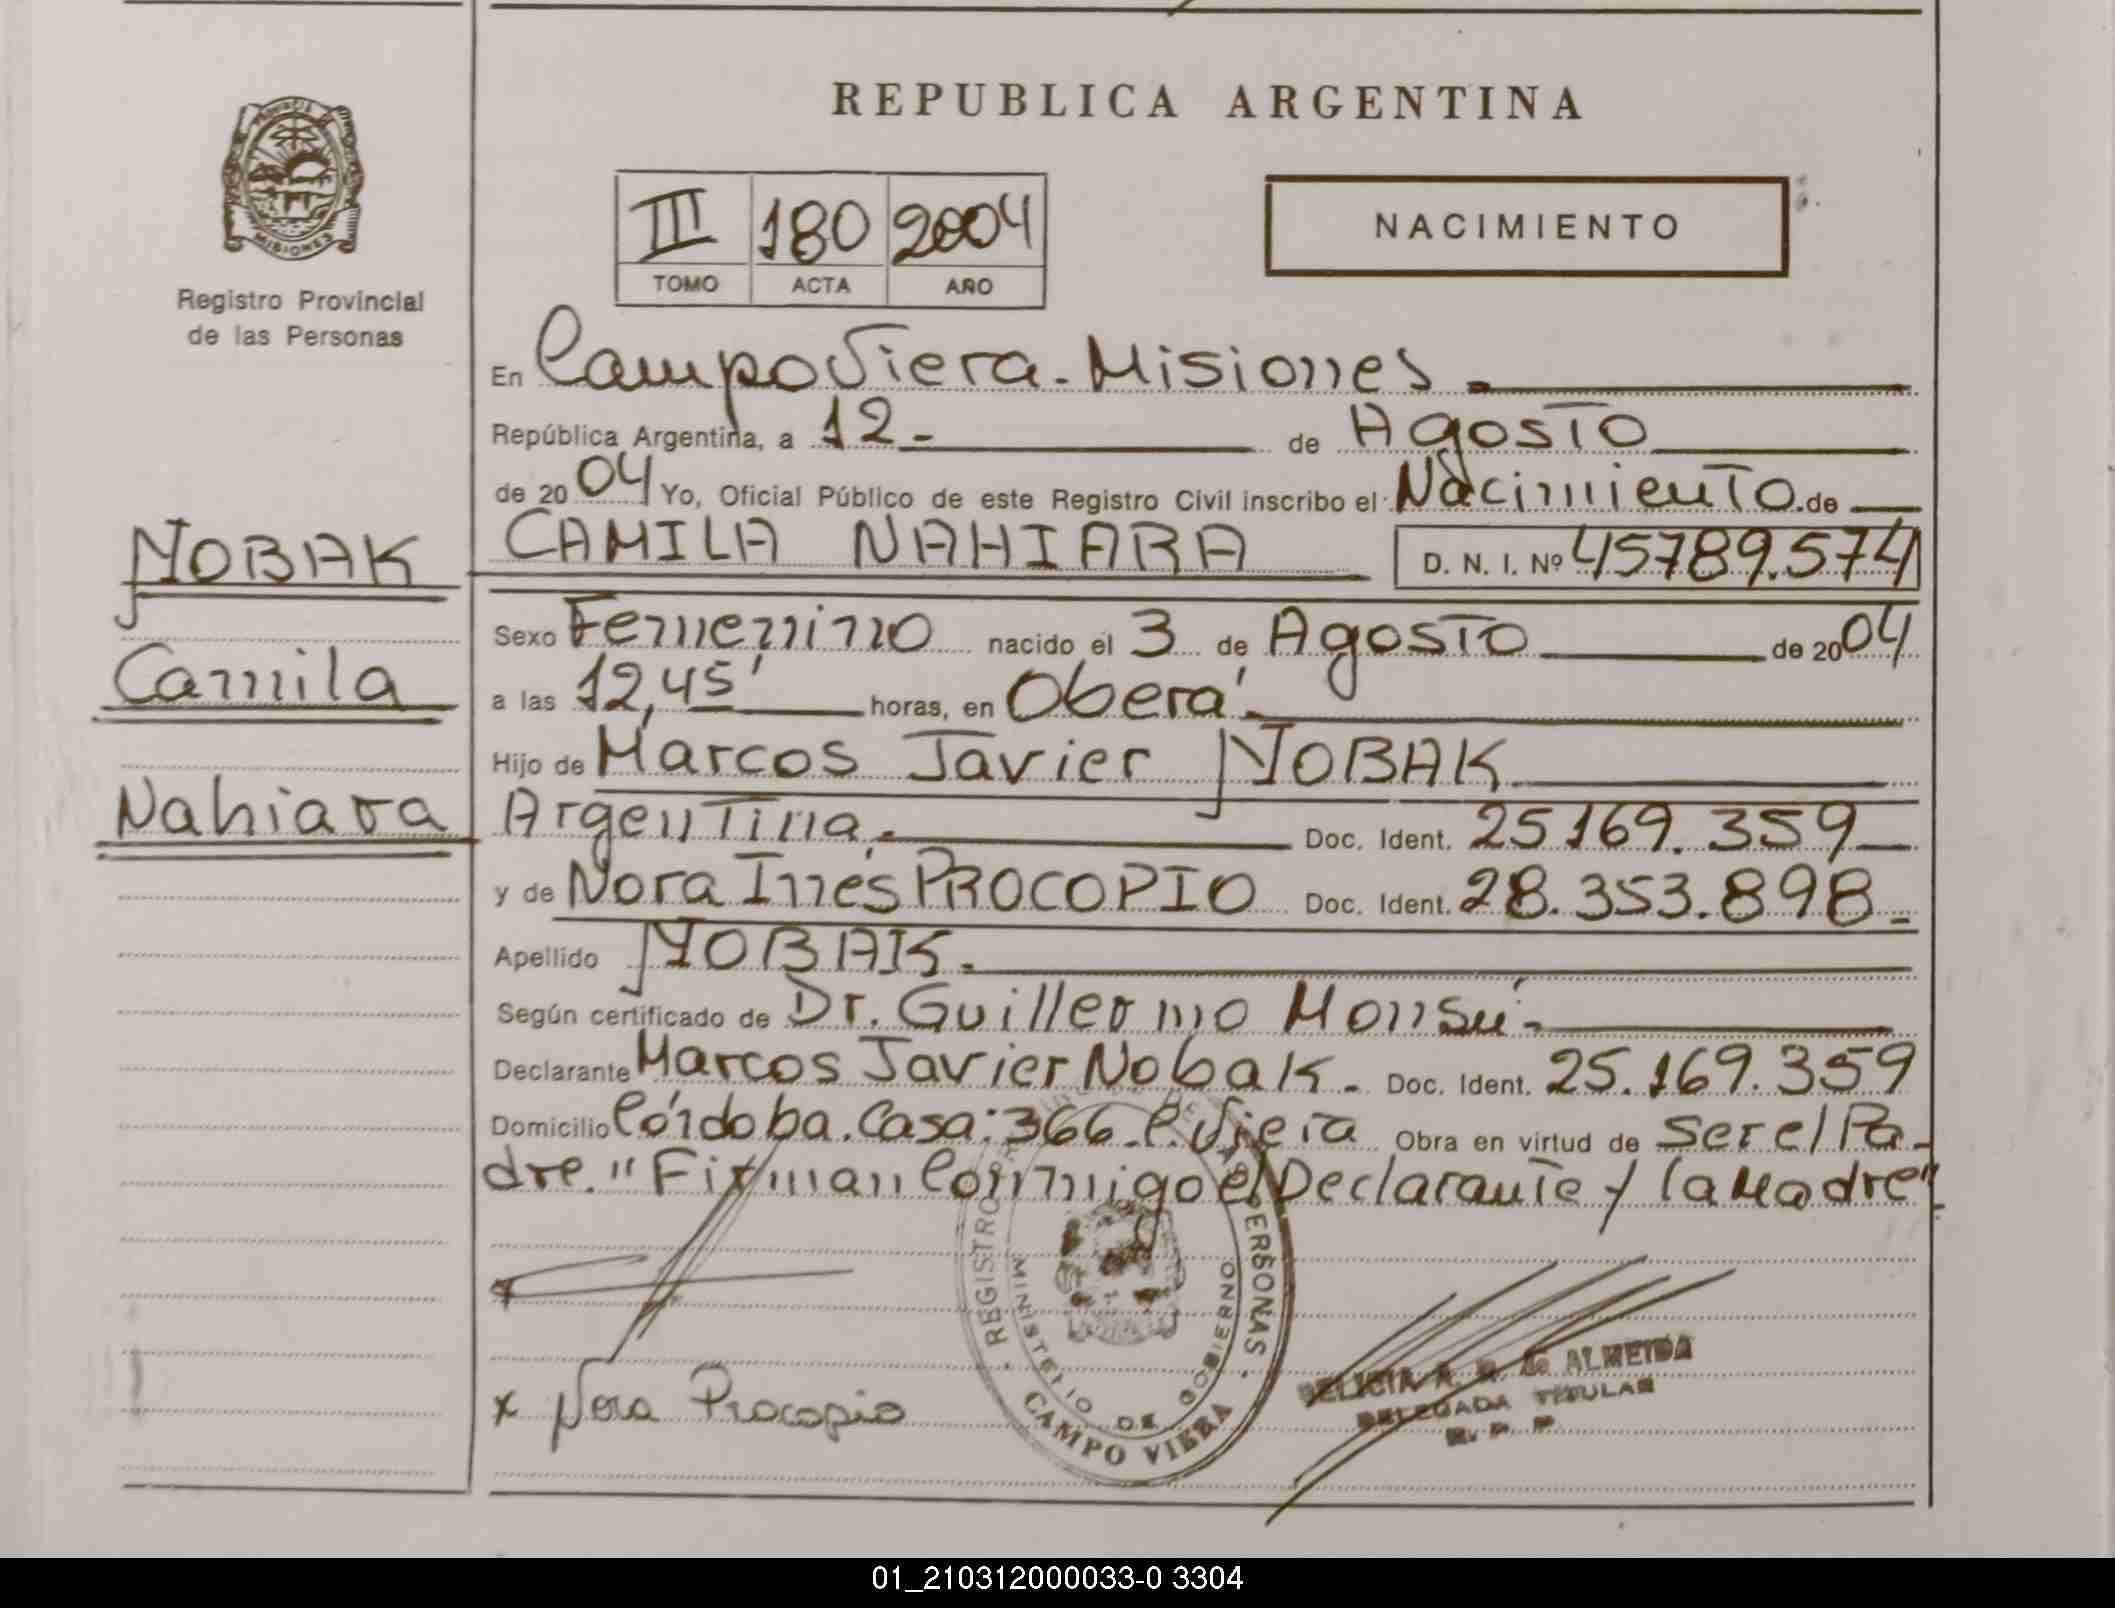 REPUBLICA ARGENTINA
PROVINCIA
MISIONES
Registro Provincial
de las Personas
III 180 2004
TOMO ACTA AÑO
NACIMIENTO
En Campo Viera - Misiones.
República Argentina, a 12 - de Agosto
de 2004 Yo, Oficial Público de este Registro Civil inscribo el Nacimiento de
CAMILA NAHIARA D. N. I. Nº 45789.574
NOBAK
Camila
Nahiara
Sexo Femenino nacido el 3 de Agosto de 2004
a las 12,45' horas, en Oberá.
Hijo de Marcos Javier NOBAK
Argentina. Doc. Ident. 25.169.359
y de Nora Inés PROCOPIO Doc. Ident. 28.353.898.
Apellido NOBAK.
Según certificado de Dr. Guillermo Monsú.
Declarante Marcos Javier Nobak. Doc. Ident. 25.169.359
Domicilio Córdoba. Casa: 366. C. Viera Obra en virtud de ser el Pa-
dre. "Firman Conmigo el Declarante y la Madre".
REGISTRO DE LAS PERSONAS
MINISTERIO DE GOBIERNO
CAMPO VIERA
x Nora Procopio
DELICIA A. D. ALMEIDA
DELEGADA TITULAR
R. P. P.
01_210312000033-0 3304